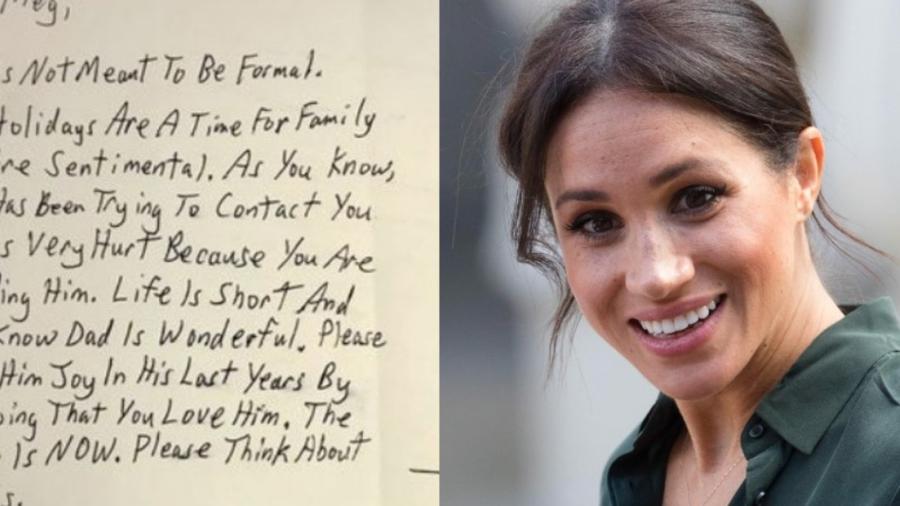 Meg,
s Not Meant To Be Formal.
Holidays Are A Time For Family
re Sentimental. As You Know,
Has Been Trying To Contact You
s Very Hurt Because You Are
ing Him. Life Is Short And
Know Dad Is Wonderful. Please
Him Joy In His Last Years By
ing That You Love Him. The
Is NOW. Please Think About
s.